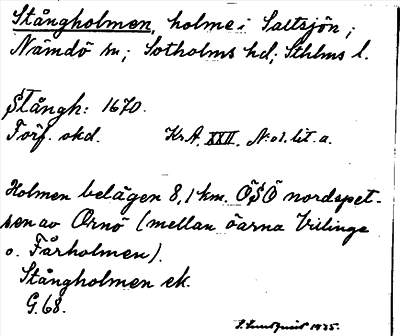 Stångholmen, holme i Saltsjön;
Nämdö sn; Sotholms hd; Sthlms l.
Stångh: 1670.
Förf. okd. Kr.A. XXII, N:o1. lit. a.
Holmen belägen 8,1 km. ÖSÖ nordspet-
sen av Ornö (mellan öarna Vilinge
o. Fårholmen).
Stångholmen ek.
G. 68.
S. Lundquist 1935.